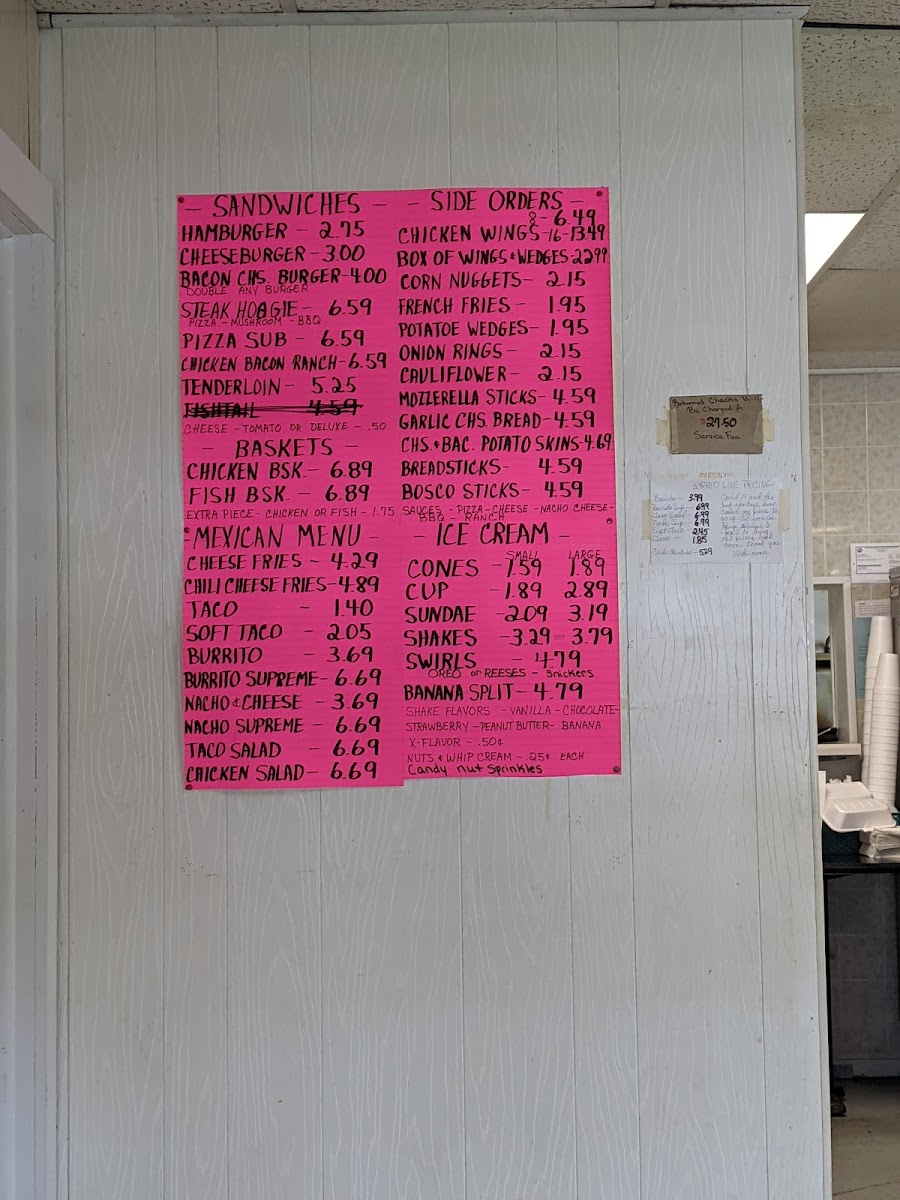 - SANDWICHES -
HAMBURGER - 2.75
CHEESEBURGER - 3.00
BACON CHS. BURGER - 4.00
DOUBLE ANY BURGER
STEAK HOAGIE - 6.59
PIZZA - MUSHROOM - BBQ
PIZZA SUB - 6.59
CHICKEN BACON RANCH - 6.59
TENDERLOIN - 5.25
FISHTAIL 4.59
CHEESE - TOMATO OR DELUXE - .50
- BASKETS -
CHICKEN BSK. - 6.89
FISH BSK. - 6.89
EXTRA PIECE - CHICKEN OR FISH - 1.75
- MEXICAN MENU -
CHEESE FRIES - 4.29
CHILI CHEESE FRIES - 4.89
TACO - 1.40
SOFT TACO - 2.05
BURRITO - 3.69
BURRITO SUPREME - 6.69
NACHO & CHEESE - 3.69
NACHO SUPREME - 6.69
TACO SALAD - 6.69
CHICKEN SALAD - 6.69
- SIDE ORDERS -
8 - 6.49
CHICKEN WINGS - 16 - 13.49
BOX OF WINGS & WEDGES - 22.99
CORN NUGGETS - 2.15
FRENCH FRIES - 1.95
POTATOE WEDGES - 1.95
ONION RINGS - 2.15
CAULIFLOWER - 2.15
MOZZERELLA STICKS - 4.59
GARLIC CHS. BREAD - 4.59
CHS. & BAC. POTATO SKINS - 4.69
BREADSTICKS - 4.59
BOSCO STICKS - 4.59
SAUCES - PIZZA - CHEESE - NACHO CHEESE -
BBQ - RANCH
- ICE CREAM -
SMALL LARGE
CONES - 1.59 1.89
CUP - 1.89 2.89
SUNDAE - 2.09 3.19
SHAKES - 3.29 3.79
SWIRLS - 4.79
OREO or REESES - Snickers
BANANA SPLIT - 4.79
SHAKE FLAVORS - VANILLA - CHOCOLATE -
STRAWBERRY - PEANUT BUTTER - BANANA
X-FLAVOR - .50¢
NUTS & WHIP CREAM - .25¢ EACH
Candy nut Sprinkles
Returned Checks Will
Be Charged A
$27.50
Service Fee
BURRITO LIKE PRICING
3.99
6.99
6.99
6.99
2.45
Taco - 1.85
5.29